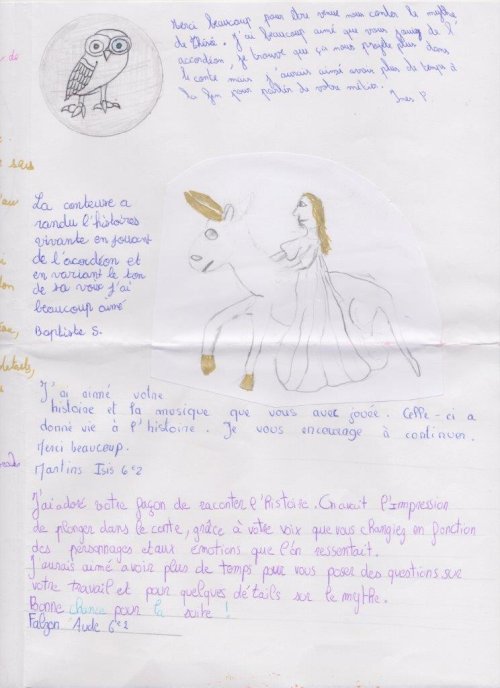 Merci beaucoup pour être venue nous conter le mythe
de Thésé. J'ai beaucoup aimé que vous jouiez de l'
accordéon, je trouve que ça nous projete plus dans
le conte mais j'aurais aimé avoir plus de temps à
la fin pour parler de votre métier.
Ines P.
La conteuse a
randu l'histoires
vivante en jouant
de l'acordéon et
en variant le ton
de sa voix j'ai
beaucoup aimé
Baptiste S.
J'ai aimé votre
histoire et la musique que vous avec jouée. Celle-ci a
donné vie à l'histoire. Je vous encourage à continuer.
Merci beaucoup.
Martins Isis 6e2
J'ai adoré votre façon de raconter l'histoire. On avait l'impression
de plonger dans le conte, grâce à votre voix que vous changiez en fonction
des personnages et aux émotions que l'on ressentait.
J'aurais aimé avoir plus de temps pour vous poser des questions sur
votre travail et pour quelques détails sur le mythe.
Bonne chance pour la suite !
Falzon Aude 6e2